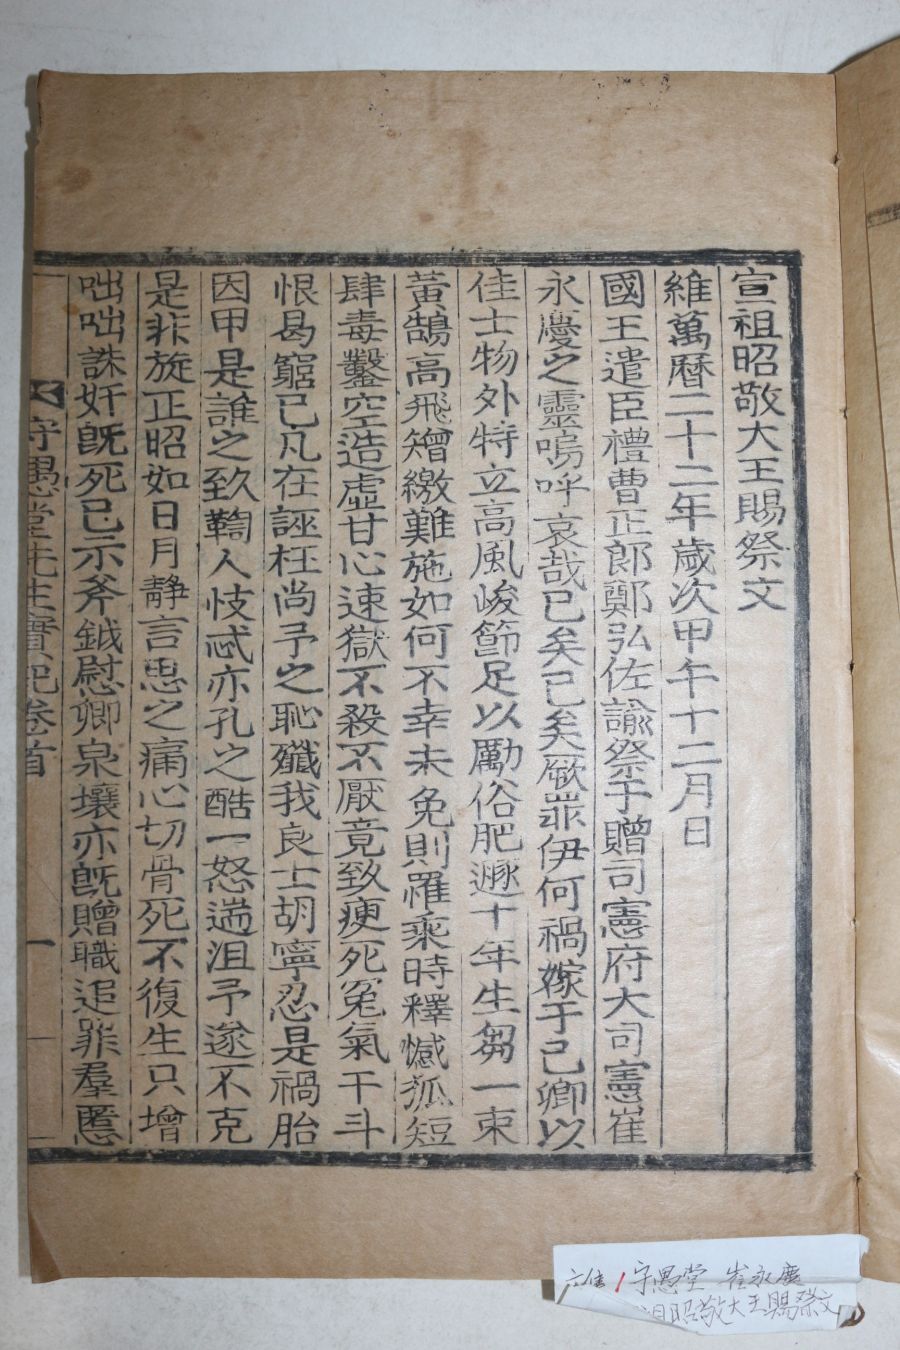 宣祖昭敬大王賜祭文
維萬曆二十二年歲次甲午十二月日
國王遣臣禮曹正郎鄭弘佐諭祭于贈司憲府大司憲崔
永慶之靈嗚呼哀哉已矣已矣厥罪伊何禍嫁于己卿以
佳士物外特立高風峻節足以勵俗肥遯十年生芻一束
黃鵠高飛矰繳難施如何不幸未免則罹乘時釋憾狐短
肆毒鑿空造虛甘心速獄不殺不厭竟致瘐死冤氣干斗
恨曷窮已凡在誣枉尚予之恥殲我良士胡寧忍是禍胎
因甲是誰之致鞫人忮忒亦孔之酷一怒遄沮予遂不克
是非旋正昭如日月靜言思之痛心切骨死不復生只增
咄咄誅奸旣死已示斧鉞慰卿泉壤亦旣贈職追罪羣慝
守愚堂先生實紀卷首 一
守愚堂 崔永慶
昭敬大王賜祭文